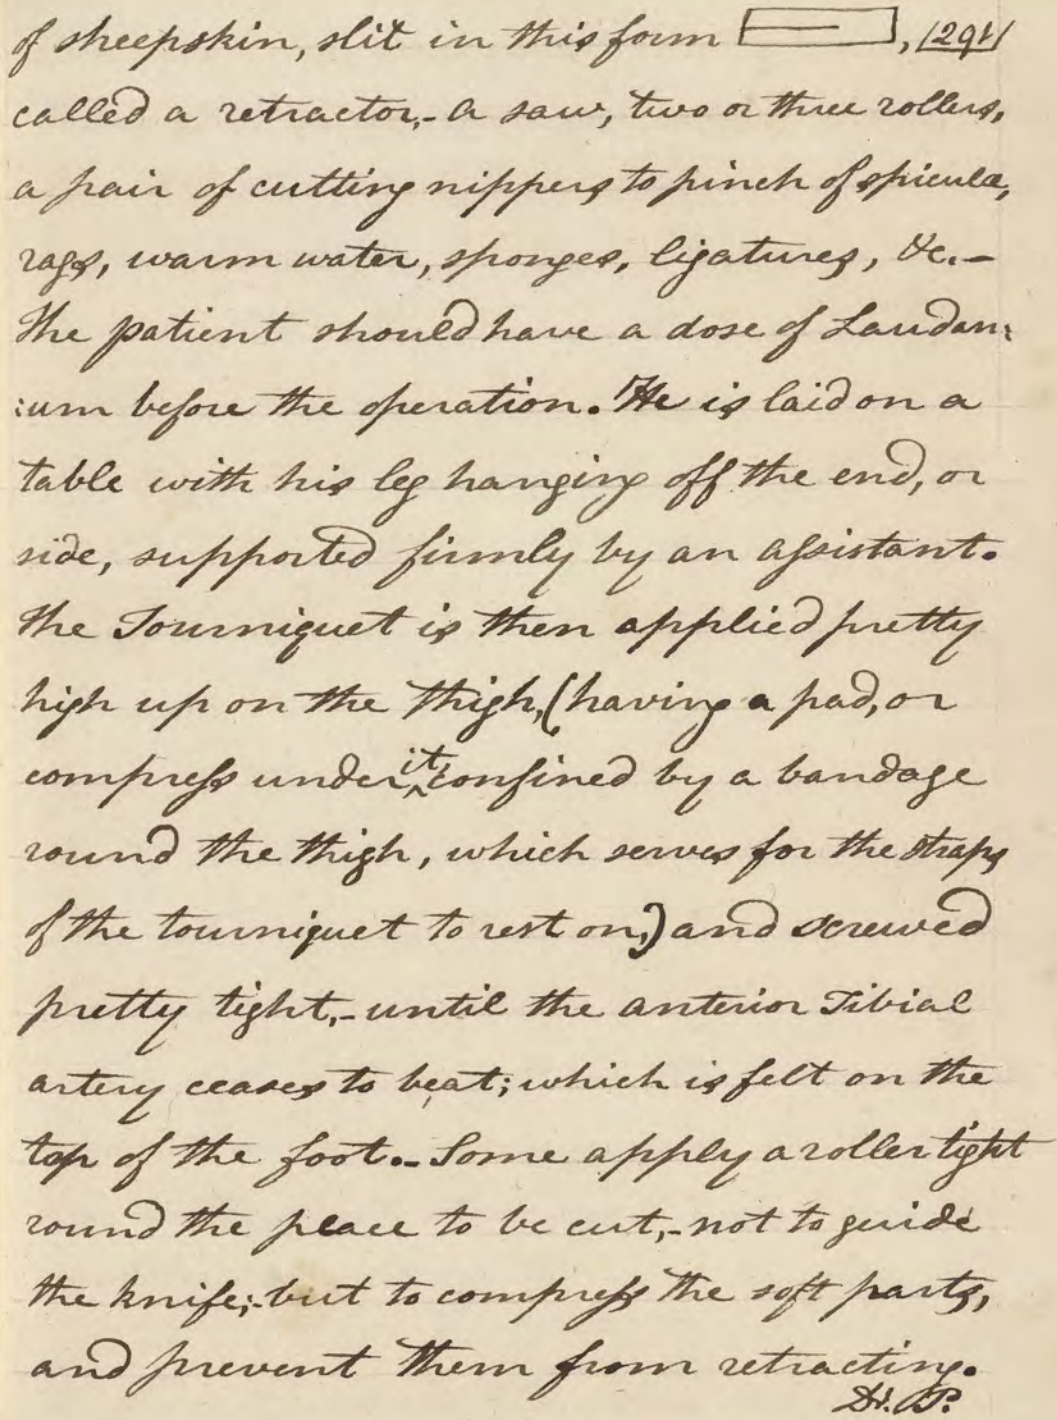 of sheepskin, slit in this form , /291/
called a retractor,- a saw, two or three rollers,
a pair of cutting nippers to pinch of spiculæ,
rags, warm water, sponges, ligatures, &c.-
The patient should have a dose of Laudan:
:um before the operation. He is laid on a
table with his leg hanging off the end, or
side, supported firmly by an assistant.
The Tourniquet is then applied pretty
high up on the thigh, (having a pad, or
compress under it, confined by a bandage
round the thigh, which serves for the straps
of the tourniquet to rest on,) and screwed
pretty tight,- until the anterior Tibial
artery ceases to beat; which is felt on the
top of the foot.- Some apply a roller tight
round the place to be cut,- not to guide
the knife;- but to compress the soft parts,
and prevent them from retracting.
Dr. P.